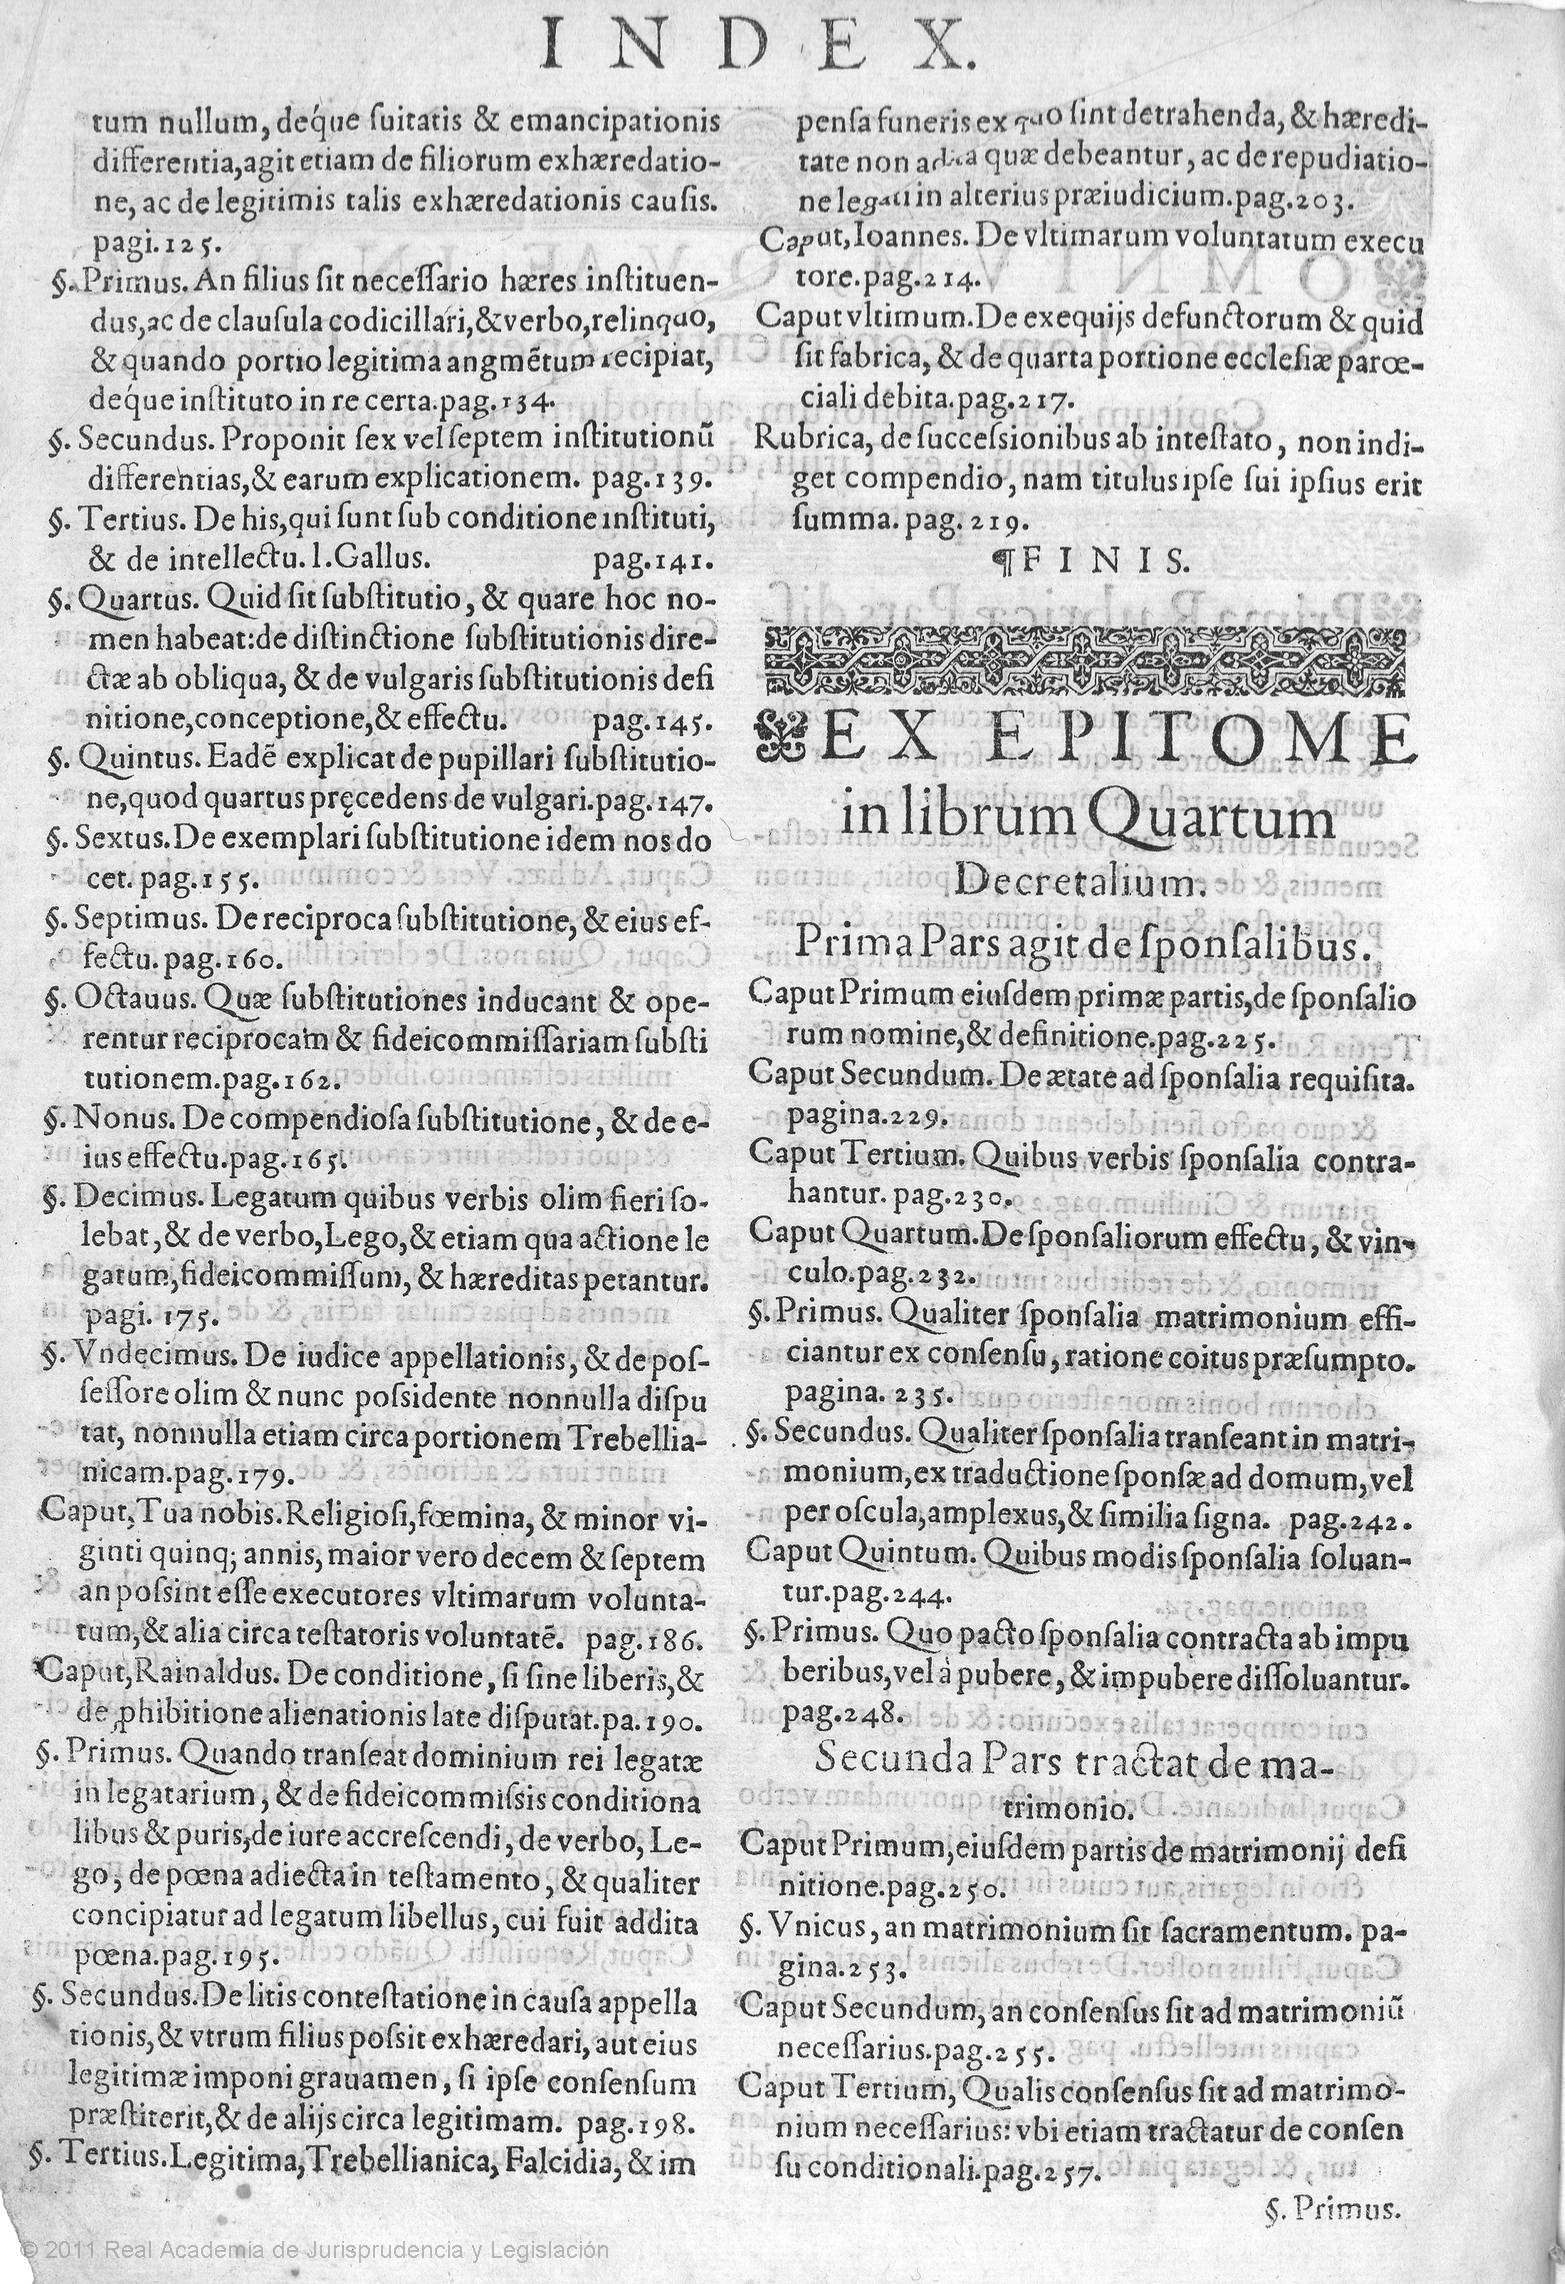 INDEX.
tum nullum, déque ſuitatis & emancipationis
differentia,agit etiam de filiorum exhæredatio-
ne, ac de legitimis talis exhæredationis cauſis.
pagi.125.
§. Primus. An filius ſit neceſſario hæres inſtituen-
dus,ac de clauſula codicillari,& verbo,relinquo,
& quando portio legitima angmētum recipiat,
déque inſtituto in re certa.pag.134.
§. Secundus. Proponit ſex vel ſeptem inſtitutionū
differentias,& earum explicationem. pag.139.
§. Tertius. De his,qui ſunt ſub conditione inſtituti,
& de intellectu. l.Gallus. pag.141.
§. Quartus. Quid ſit ſubſtitutio, & quare hoc no-
men habeat:de diſtinctione ſubſtitutionis dire-
ctæ ab obliqua, & de vulgaris ſubſtitutionis defi
nitione,conceptione,& effectu. pag.145.
§. Quintus. Eadē explicat de pupillari ſubſtitutio-
ne,quod quartus pręcedens de vulgari.pag.147.
§. Sextus. De exemplari ſubſtitutione idem nos do
cet. pag.155.
§. Septimus. De reciproca ſubſtitutione, & eius ef-
fectu. pag.160.
§. Octauus. Quæ ſubſtitutiones inducant & ope-
rentur reciprocam & fideicommiſſariam ſubſti
tutionem.pag.162.
§. Nonus. De compendioſa ſubſtitutione, & de e-
ius effectu.pag.165.
§. Decimus. Legatum quibus verbis olim fieri ſo-
lebat,& de verbo,Lego,& etiam qua actione le
gatum,fideicommiſſum, & hæreditas petantur.
pagi. 175.
§. Vndecimus. De iudice appellationis, & de poſ-
ſeſſore olim & nunc poſsidente nonnulla diſpu
tat, nonnulla etiam circa portionem Trebellia-
nicam.pag.179.
Caput,Tua nobis.Religioſi,fœmina, & minor vi-
ginti quinq; annis, maior vero decem & ſeptem
an poſsint eſſe executores vltimarum volunta-
tum,& alia circa teſtatoris voluntatē. pag.186.
Caput,Rainaldus. De conditione, ſi ſine liberis,&
de ꝓhibitione alienationis late diſputat.pa.190.
§. Primus. Quando tranſeat dominium rei legatæ
in legatarium, & de fideicommiſsis conditiona
libus & puris,de iure accreſcendi, de verbo, Le-
go, de pœna adiecta in teſtamento, & qualiter
concipiatur ad legatum libellus, cui fuit addita
pœna.pag.195.
§. Secundus. De litis conteſtatione in cauſa appella
tionis,& vtrum filius poſsit exhæredari, aut eius
legitimæ imponi grauamen, ſi ipſe conſenſum
præſtiterit,& de alijs circa legitimam. pag.198.
§. Tertius. Legitima,Trebellianica, Falcidia, & im
penſa funeris ex quo ſint detrahenda, & hæredi-
tate non adita quæ debeantur, ac de repudiatio-
ne legati in alterius præiudicium.pag.203.
Caput,Ioannes. De vltimarum voluntatum execu
tore.pag.214.
Caput vltimum.De exequijs defunctorum & quid
ſit fabrica, & de quarta portione eccleſiæ parœ-
ciali debita.pag.217.
Rubrica, de ſucceſsionibus ab inteſtato, non indi-
get compendio, nam titulus ipſe ſui ipſius erit
ſumma. pag. 219.
¶FINIS.
EX EPITOME
in librum Quartum
Decretalium.
Prima Pars agit de ſponſalibus.
Caput Primum eiuſdem primæ partis,de ſponſalio
rum nomine,& definitione.pag.225.
Caput Secundum. De ætate ad ſponſalia requiſita.
pagina.229.
Caput Tertium. Quibus verbis ſponſalia contra-
hantur. pag.230.
Caput Quartum.De ſponſaliorum effectu, & vin-
culo.pag.232.
§.Primus. Qualiter ſponſalia matrimonium effi-
ciantur ex conſenſu, ratione coitus præſumpto.
pagina. 235.
§. Secundus. Qualiter ſponſalia tranſeant in matri-
monium,ex traductione ſponſæ ad domum, vel
per oſcula,amplexus,& ſimilia ſigna. pag.242.
Caput Quintum. Quibus modis ſponſalia ſoluan-
tur.pag.244.
§. Primus. Quo pacto ſponſalia contracta ab impu
beribus,vel à pubere, & impubere diſſoluantur.
pag.248.
Secunda Pars tractat de ma-
trimonio.
Caput Primum,eiuſdem partis de matrimonij defi
nitione.pag.250.
§. Vnicus, an matrimonium ſit ſacramentum. pa-
gina.253.
Caput Secundum, an conſenſus ſit ad matrimoniū
neceſſarius.pag.255.
Caput Tertium, Qualis conſenſus ſit ad matrimo-
nium neceſſarius: vbi etiam tractatur de conſen
ſu conditionali.pag.257.
§. Primus.
© 2011 Real Academia de Jurisprudencia y Legislación